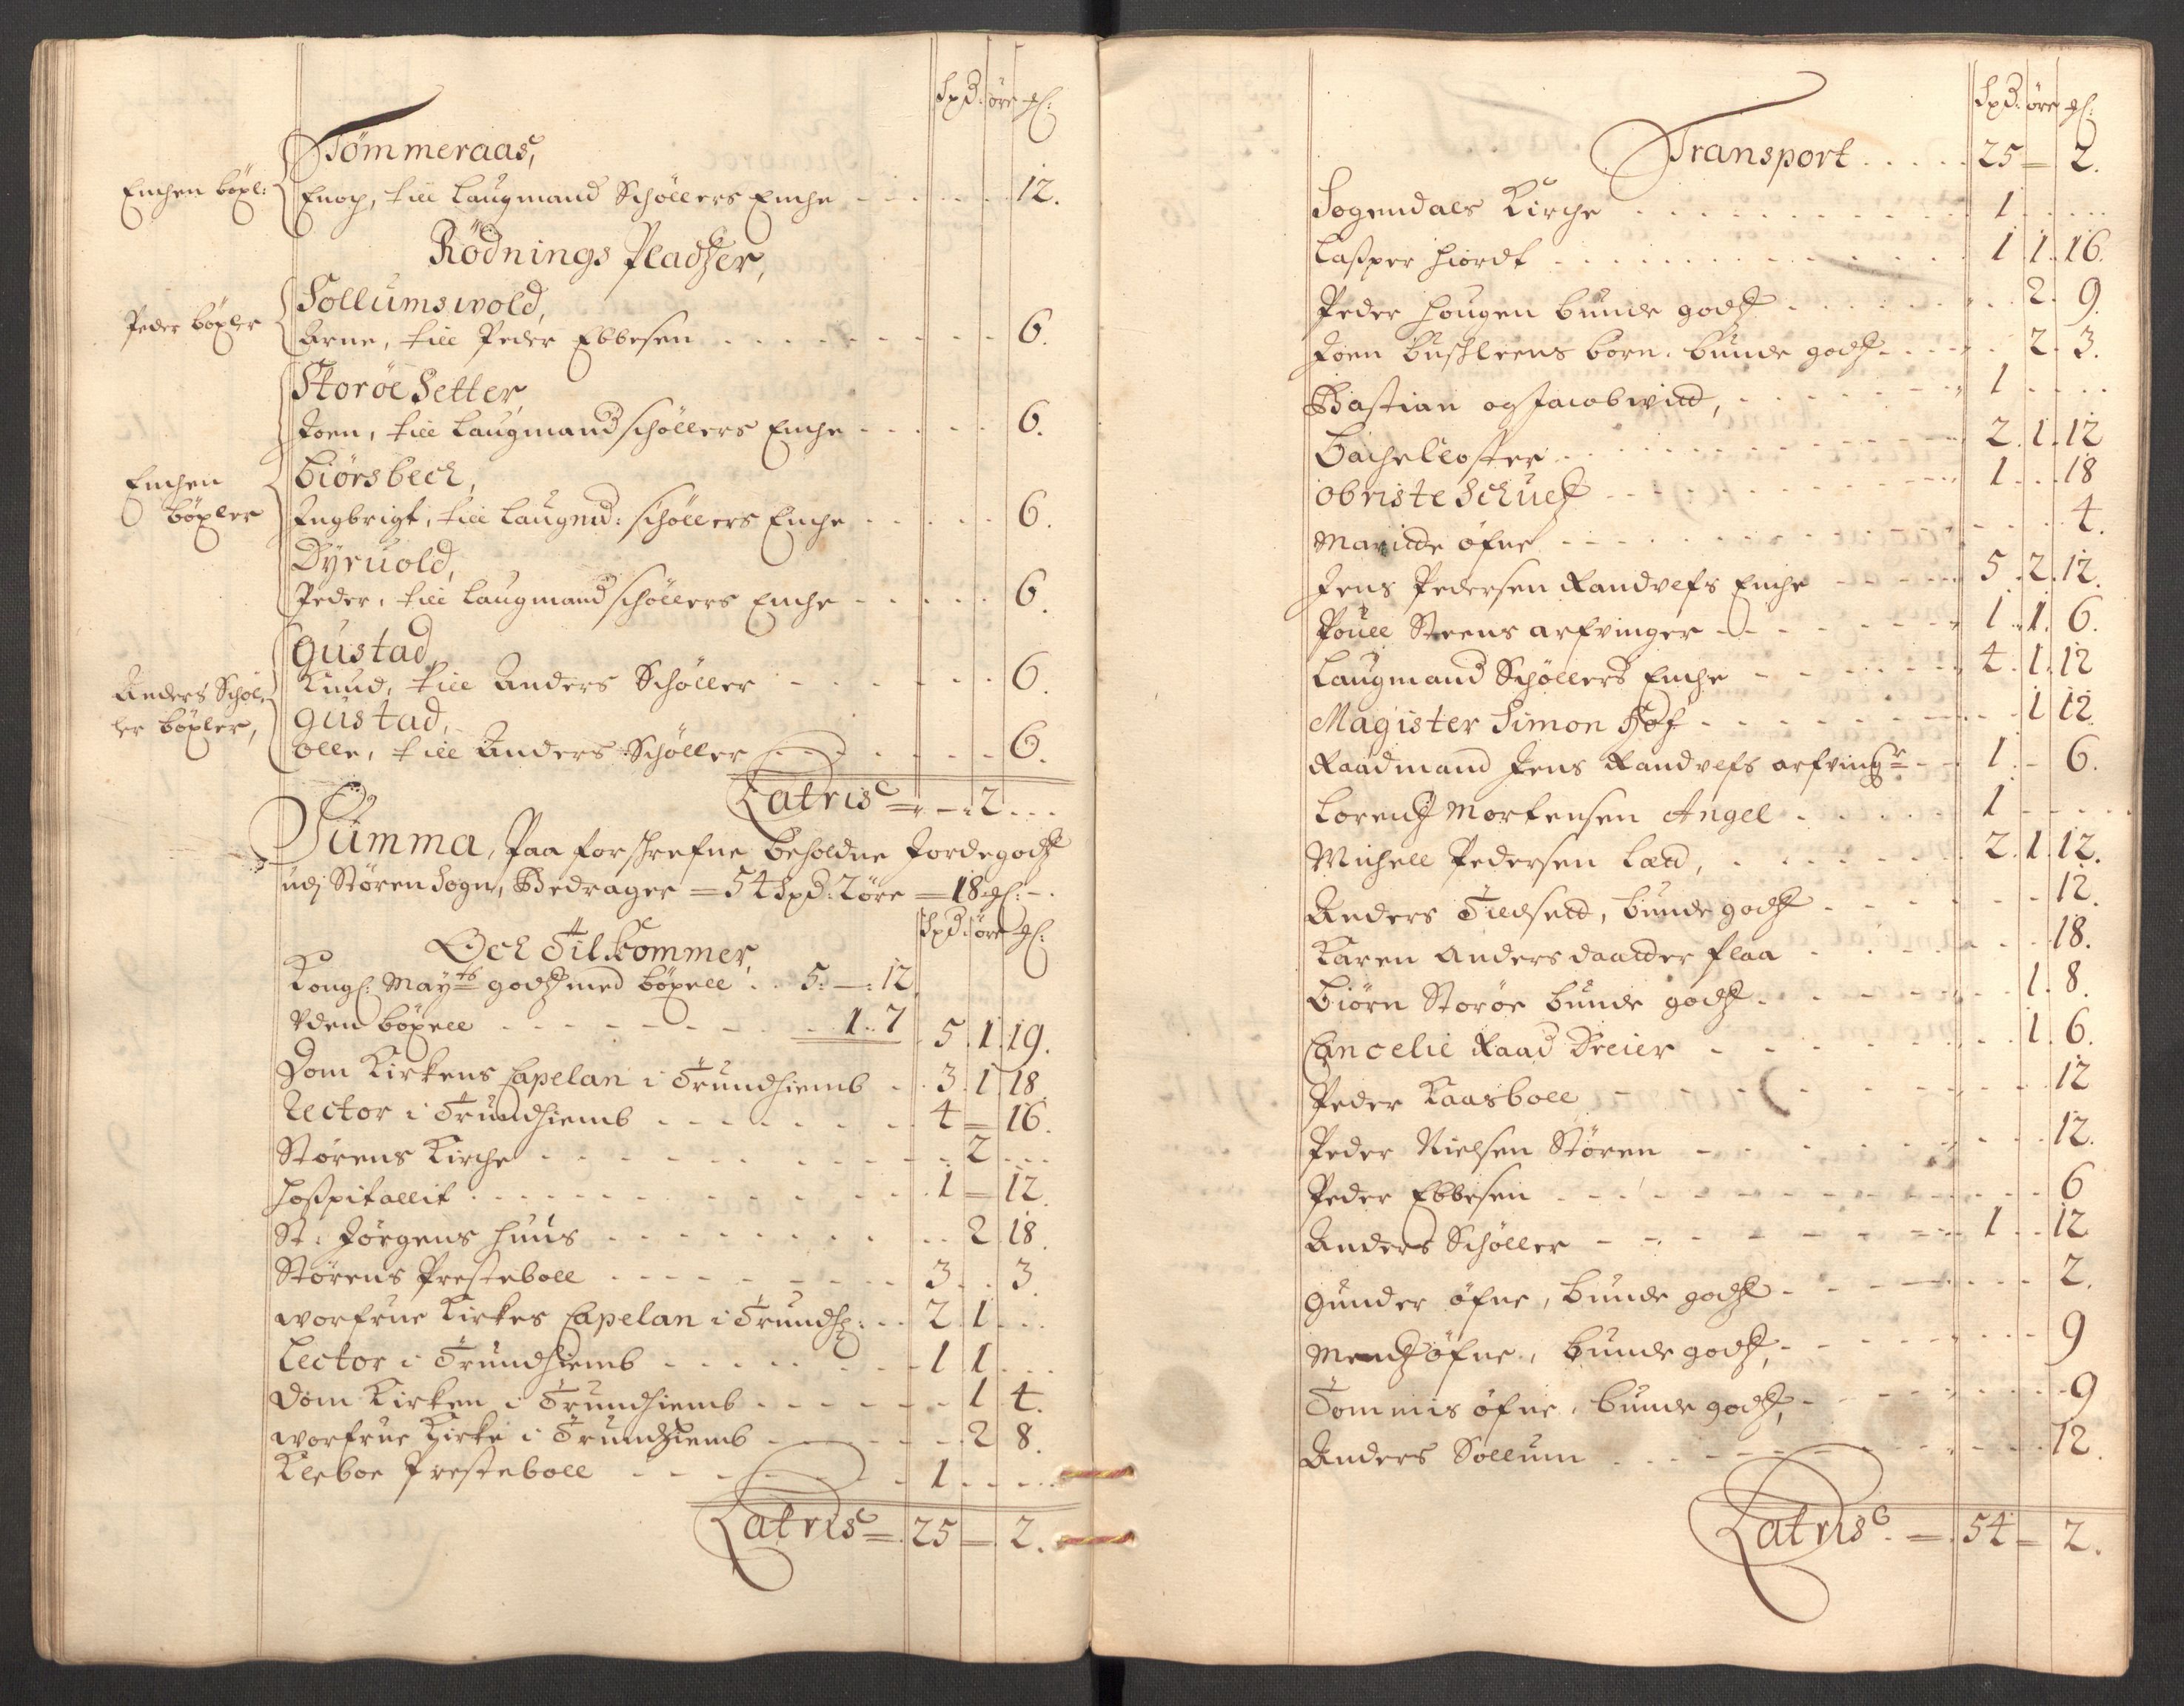 Spd: öre gl:
Tömmeraas,
Enchen böxl: Enoch, till Laugmand Schøllers Enche - - - - - 12.
Rödnings Pladtzer,
Sollumswold,
Peder böxler Arne, till Peder Ebbesen - - - - - 6.
Storöe Setter,
Joen, till Laugmand schøllers Enche - - - - - 6.
Enchen Biörsbech,
böxler Ingbrigt, till Laugmd: schøllers Enche - - - - - 6.
Dyruold,
Peder, till Laugmand schøllers Enche - - - - - 6.
Gustad,
Anders Schøl- Knud, till Anders Schøller - - - - - 6.
ler böxler, Gustad,
Olle, till Anders Schøller - - - - - 6.
Latris = - : 2 . . .
Summa, Paa forschrefne beholdne Jordegodtz
udj Stören Sogn, Bedrager = 54 Spd: 2 öre = 18 gl: -.
Spd: öre gl:
Och Tilkommer,
Kongl: Mayts godtz med böxell . . 5: - : 12
Uden böxell - - - - - 1 . 7 5 . 1 . 19.
Dom Kirkens Capelan i Trundhiemb - . 3 . 1 . 18.
Rector i Trundhiemb - - - - - 4 = 16.
Störens Kirche - - - - - 2 - . .
Hospitallit - - - - - 1 = 12.
St: Jörgens Huus - - - - - 2 18.
Störens Presteboll - - - - - 3 . . 3.
Worfrue Kirkes Capelan i Trundh: . . 2 . 1 . . .
Lector i Trundhiemb - - - - - 1 . 1 . . .
Dom Kirken i Trundhiemb - - - - - 1 4.
Worfrue Kirke i Trundhiemb - - - - - 2 8.
Kleboe Presteboll - - - - - 1 . . . .
Latris = 25 = 2.
Spd: öre gl:
Transport . . . . . 25 = 2.
Sogendals Kirche - - - - - 1 . . . .
Casper Hiordt - - - - - 1 . 1 . 16.
Peder Hougen bunde godtz - - - - - 2 . 9.
Joen Buschleens born, bunde godtz - - - - - 2 . 3.
Bastian og Jacob witd, - - - - - 1 . . . .
Bachelloster - - - - - 2 . 1 . 12
Obriste Schultz - - - - - 1 . . . 18
Maritde öfne - - - - - 4.
Jens Pedersen Randvlfs Enche - - - - - 5 . 2 . 12.
Pouell Steens arfvinger - - - - - 1 . 1 . 6.
Laugmand Schøllers Enche - - - - - 4 . 1 . 12
Magister Simon Hof - - - - - 1 12.
Raadmand Jens Randvlfs arfvingr - - 1 . - 6.
Lorentz Mortensen Angel - - - - - 1 - . . .
Michell Pedersen Lætd, - - - - - 2 . 1 . 12.
Anders Fledsetd, bunde godtz - - - - - 12.
Karen Andersdaatder flaa - - - - - 18.
Biörn Storöe bunde godtz - - - - - 1 . 8.
Cancelie Raad Dreier - - - - - 1 . 6.
Peder Kaasboll - - - - - 12
Peder Nielsen Stören - - - - - 12.
Peder Ebbesen - - - - - 6
Anders Schøller - - - - - 1 . . 12
Gunder öfne, bunde godtz - - - - - 2.
Mendtz öfne, bunde godtz, - - - - - 9
Tommis öfne, bunde godtz, - - - - - 9
Anders Sollum - - - - - 12.
Latris = 54 = 2.